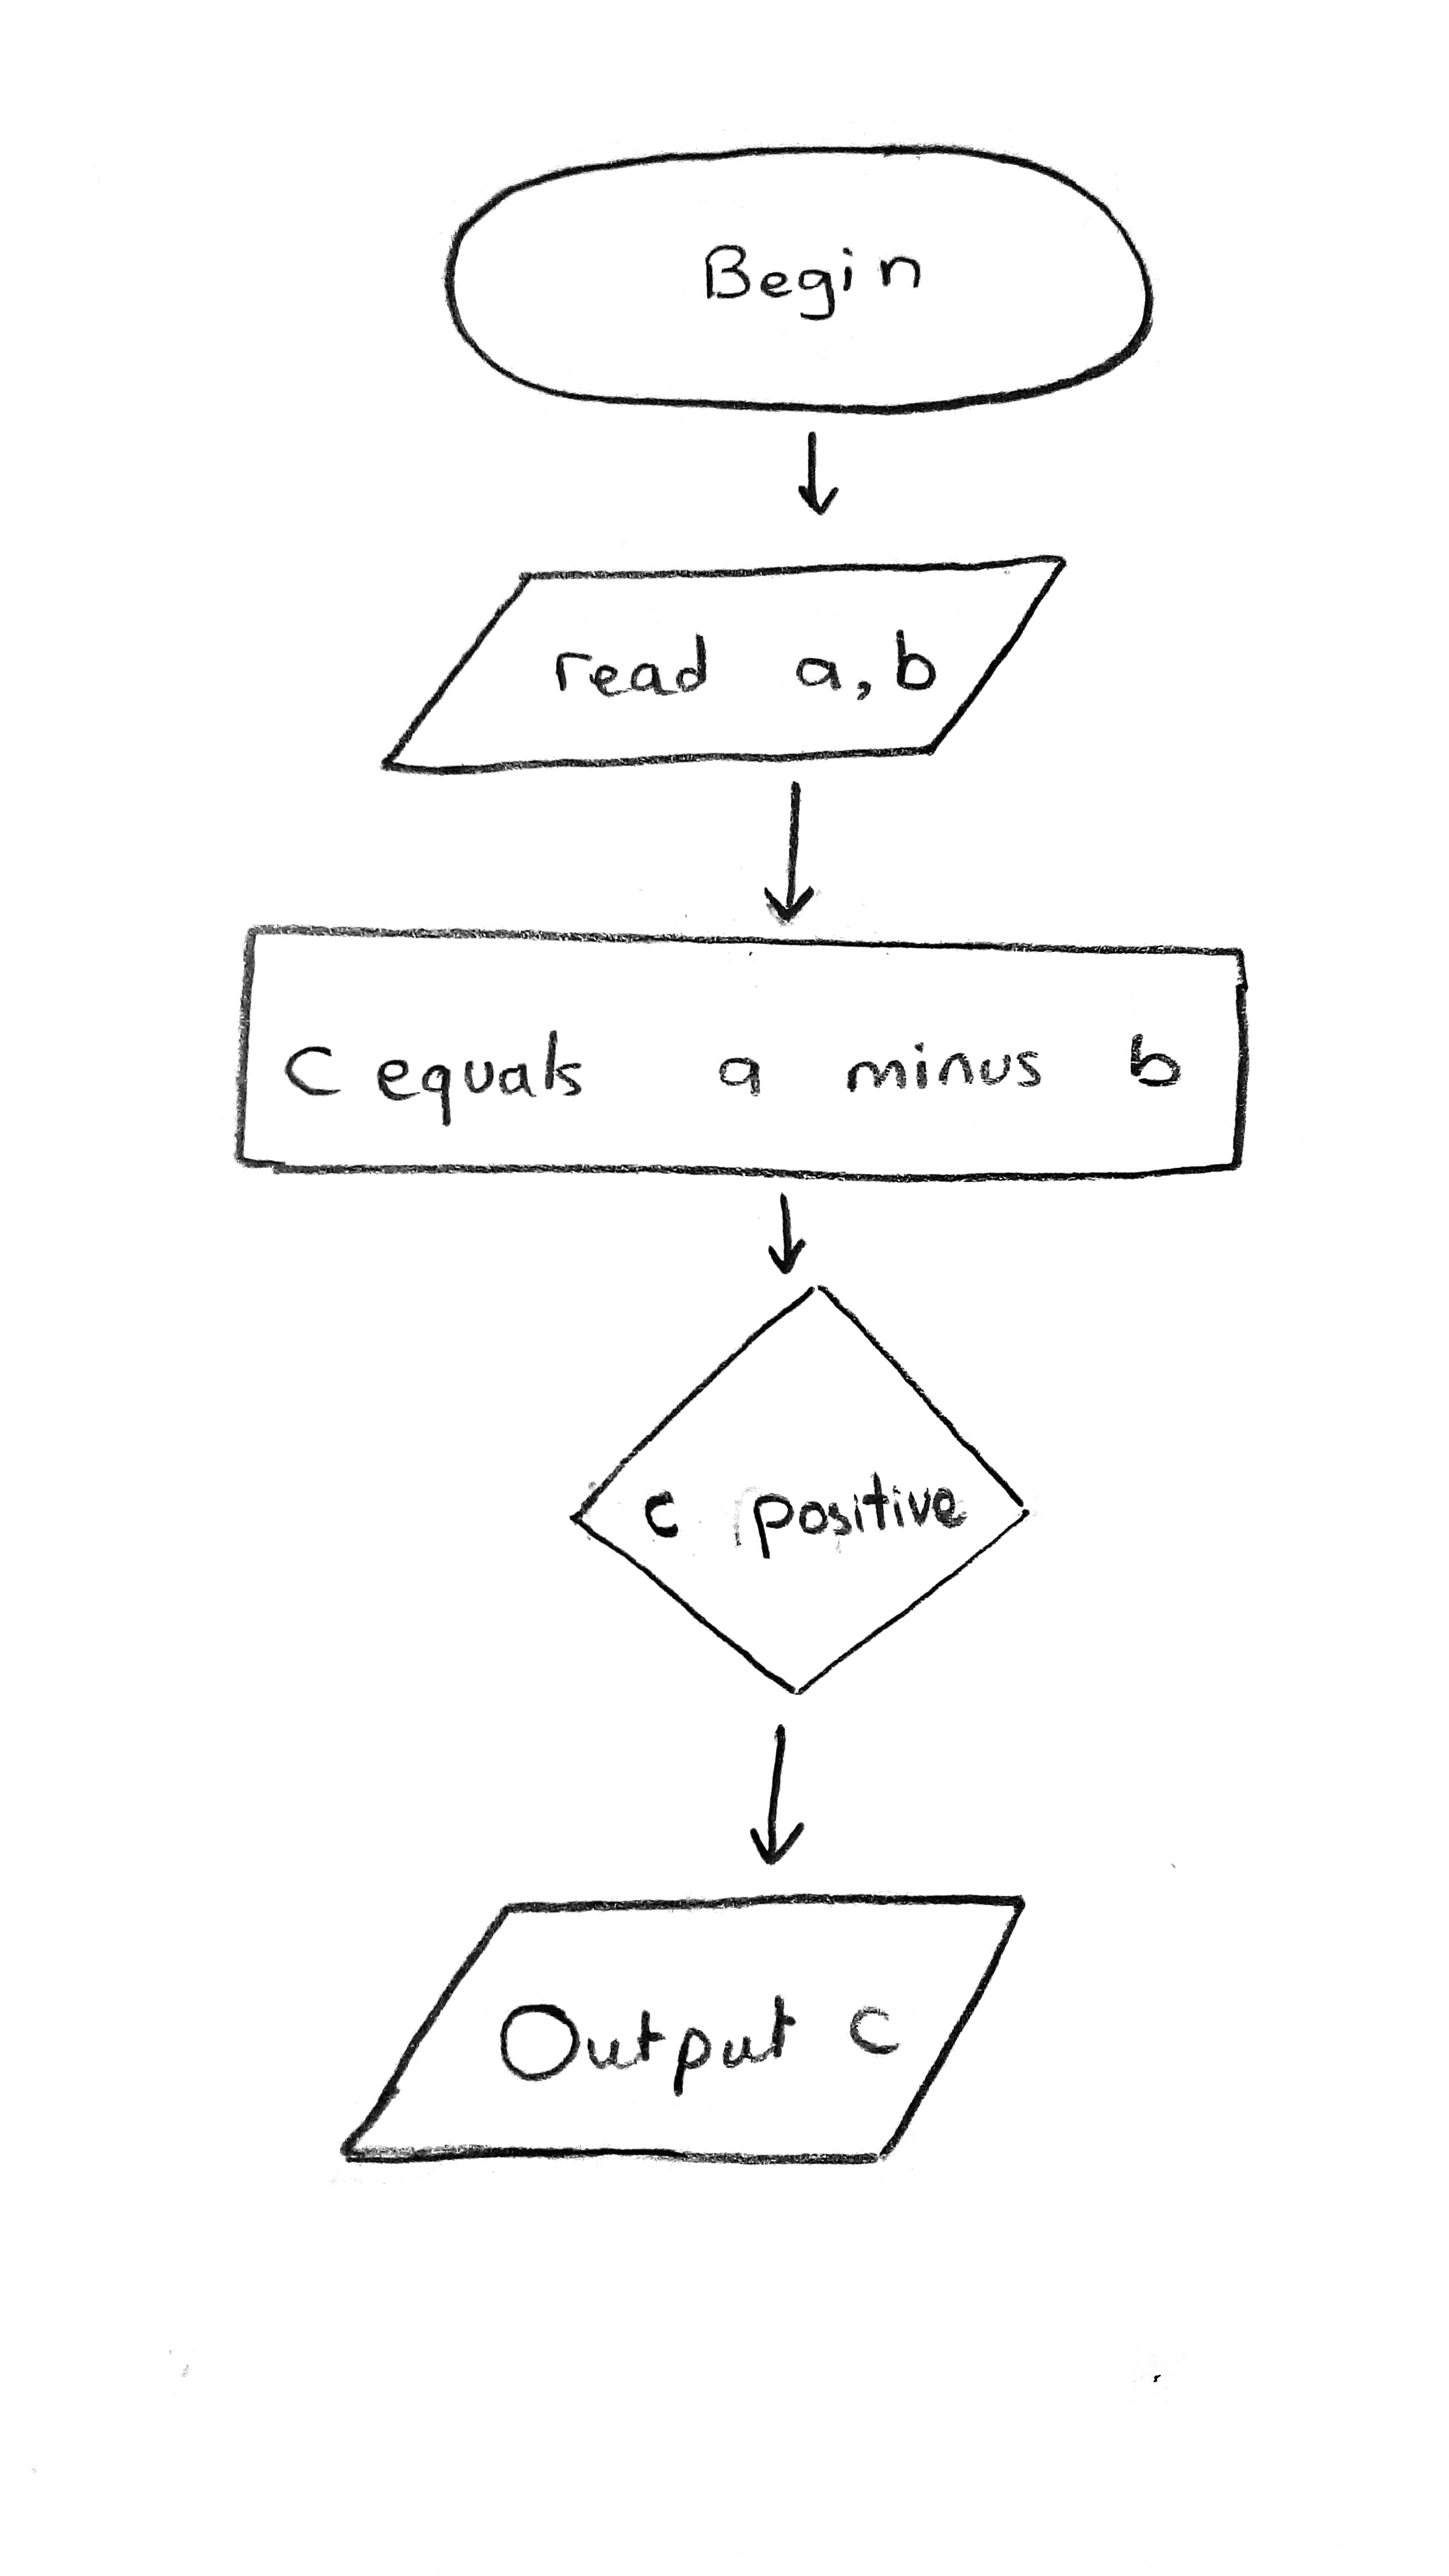 Begin
read a, b
C equals a minus b
c positive
Output C